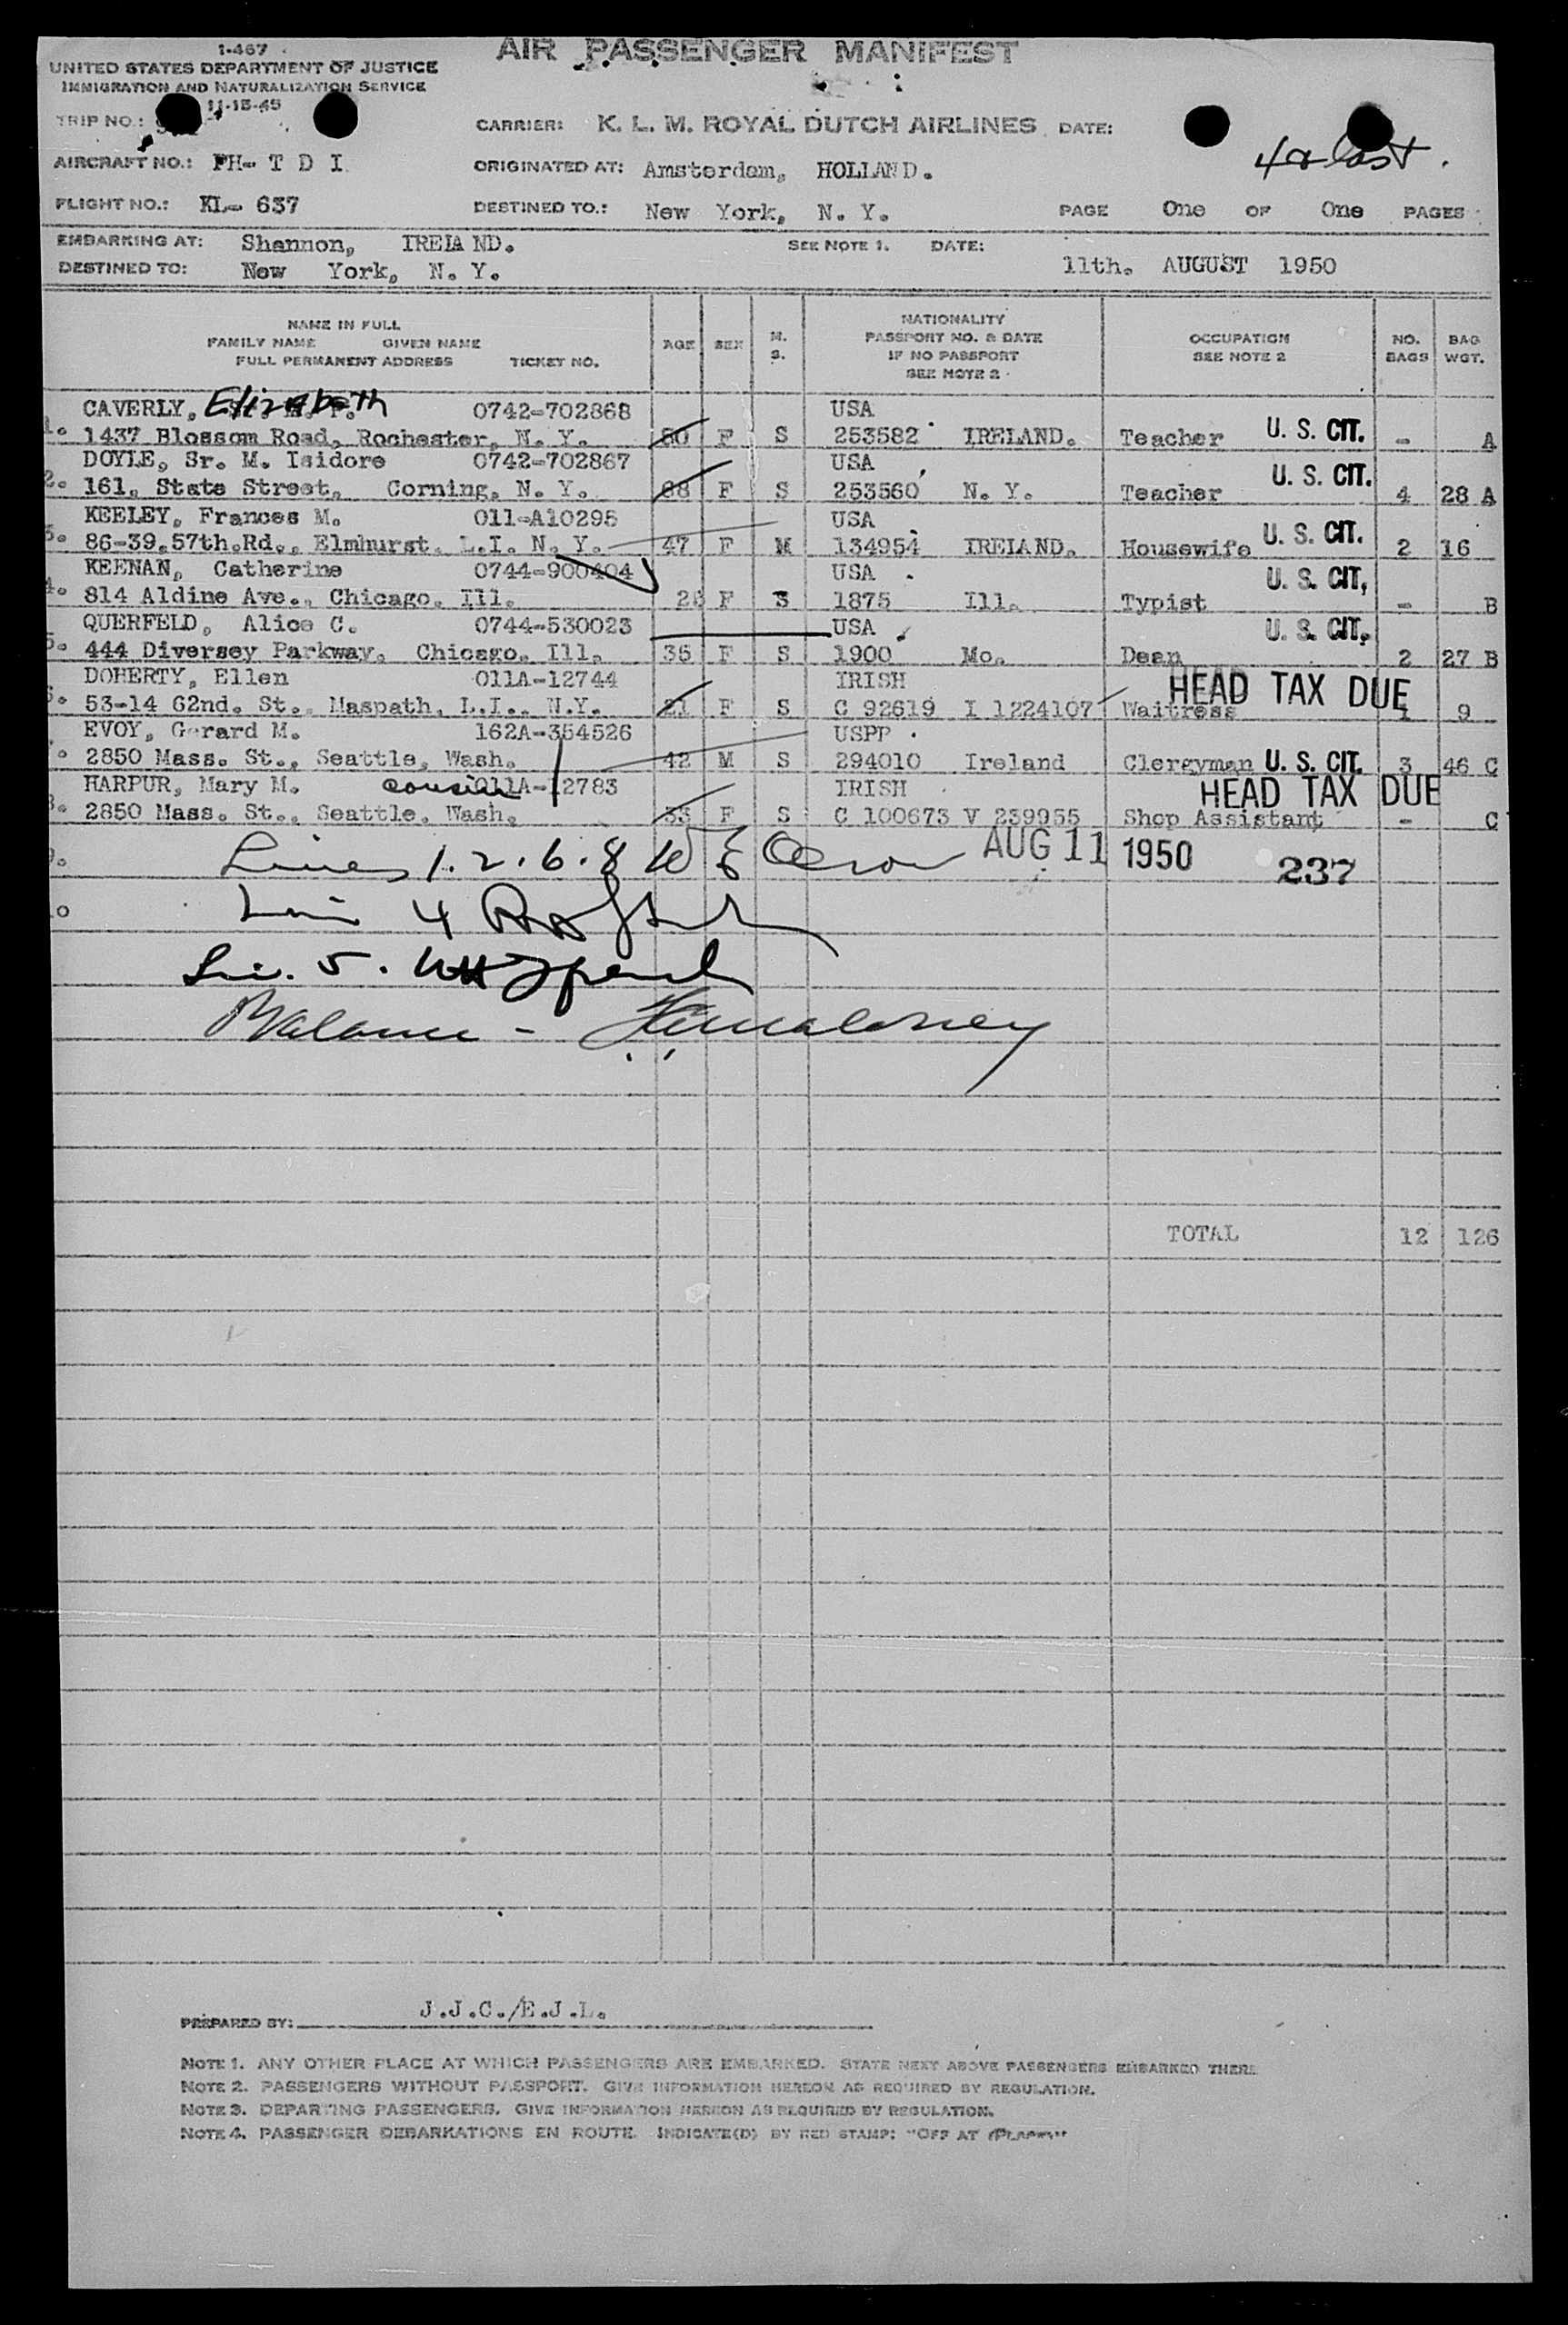 1-467
UNITED STATES DEPARTMENT OF JUSTICE
IMMIGRATION AND NATURALIZATION SERVICE
11-15-45
AIR PASSENGER MANIFEST
TRIP NO.:
CARRIER: K. L. M. ROYAL DUTCH AIRLINES DATE:
4 a last.
AIRCRAFT NO.: PH- T D I
ORIGINATED AT: Amsterdam, HOLLAND.
FLIGHT NO.: KL- 637
DESTINED TO.: New York, N. Y.
PAGE One OF One PAGES
EMBARKING AT: Shannon, IRELAND.
SEE NOTE 1. DATE:
DESTINED TO: New York, N. Y.
11th. AUGUST 1950
NAME IN FULL
FAMILY NAME GIVEN NAME
FULL PERMANENT ADDRESS TICKET NO.
AGE SEX M. S.
NATIONALITY
PASSPORT NO. & DATE
IF NO PASSPORT
SEE NOTE 2
OCCUPATION
SEE NOTE 2
NO. BAGS
BAG WGT.
CAVERLY, Elizabeth 0742-702868 USA
1. 1437 Blossom Road, Rochester, N. Y. 80 F S 253582 IRELAND. Teacher U. S. CIT. - A
DOYLE, Sr. M. Isidore 0742-702867 USA
2. 161, State Street, Corning, N. Y. 68 F S 253560 N. Y. Teacher U. S. CIT. 4 28 A
KEELEY, Frances M. 011-A10295 USA
3. 86-39.57th.Rd., Elmhurst, L.I. N. Y. 47 F M 134954 IRELAND. Housewife U. S. CIT. 2 16
KEENAN, Catherine 0744-900404 USA
4. 814 Aldine Ave., Chicago, Ill. F S 1875 Ill. Typist U. S. CIT. - B
QUERFELD, Alice C. 0744-530023 USA
5. 444 Diversey Parkway, Chicago, Ill. 35 F S 1900 Mo. Dean U. S. CIT. 2 27 B
DOHERTY, Ellen 011A-12744 IRISH
6. 53-14 62nd. St., Maspath, L.I., N.Y. 21 F S C 92619 I 1224107 Waitress HEAD TAX DUE 1 9
EVOY, Gerard M. 162A-354526 USPP
7. 2850 Mass. St., Seattle, Wash. 42 M S 294010 Ireland Clergyman U. S. CIT. 3 46 C
HARPUR, Mary M. cousin 011A-12783 IRISH
8. 2850 Mass. St., Seattle, Wash. 33 F S C 100673 V 239955 Shop Assistant HEAD TAX DUE - C
9. Lines 1. 2. 6. 8 AUG 11 1950 237
10 Line 4
Lin. 5.
Balance -
TOTAL 12 126
PREPARED BY: J.J.C./E.J.L.
NOTE 1. ANY OTHER PLACE AT WHICH PASSENGERS ARE EMBARKED. STATE NEXT ABOVE PASSENGERS EMBARKED THERE
NOTE 2. PASSENGERS WITHOUT PASSPORT. GIVE INFORMATION HEREON AS REQUIRED BY REGULATION.
NOTE 3. DEPARTING PASSENGERS. GIVE INFORMATION HEREON AS REQUIRED BY REGULATION.
NOTE 4. PASSENGER DEBARKATIONS EN ROUTE. INDICATE(D) BY RED STAMP: "OFF AT (PLACE)"